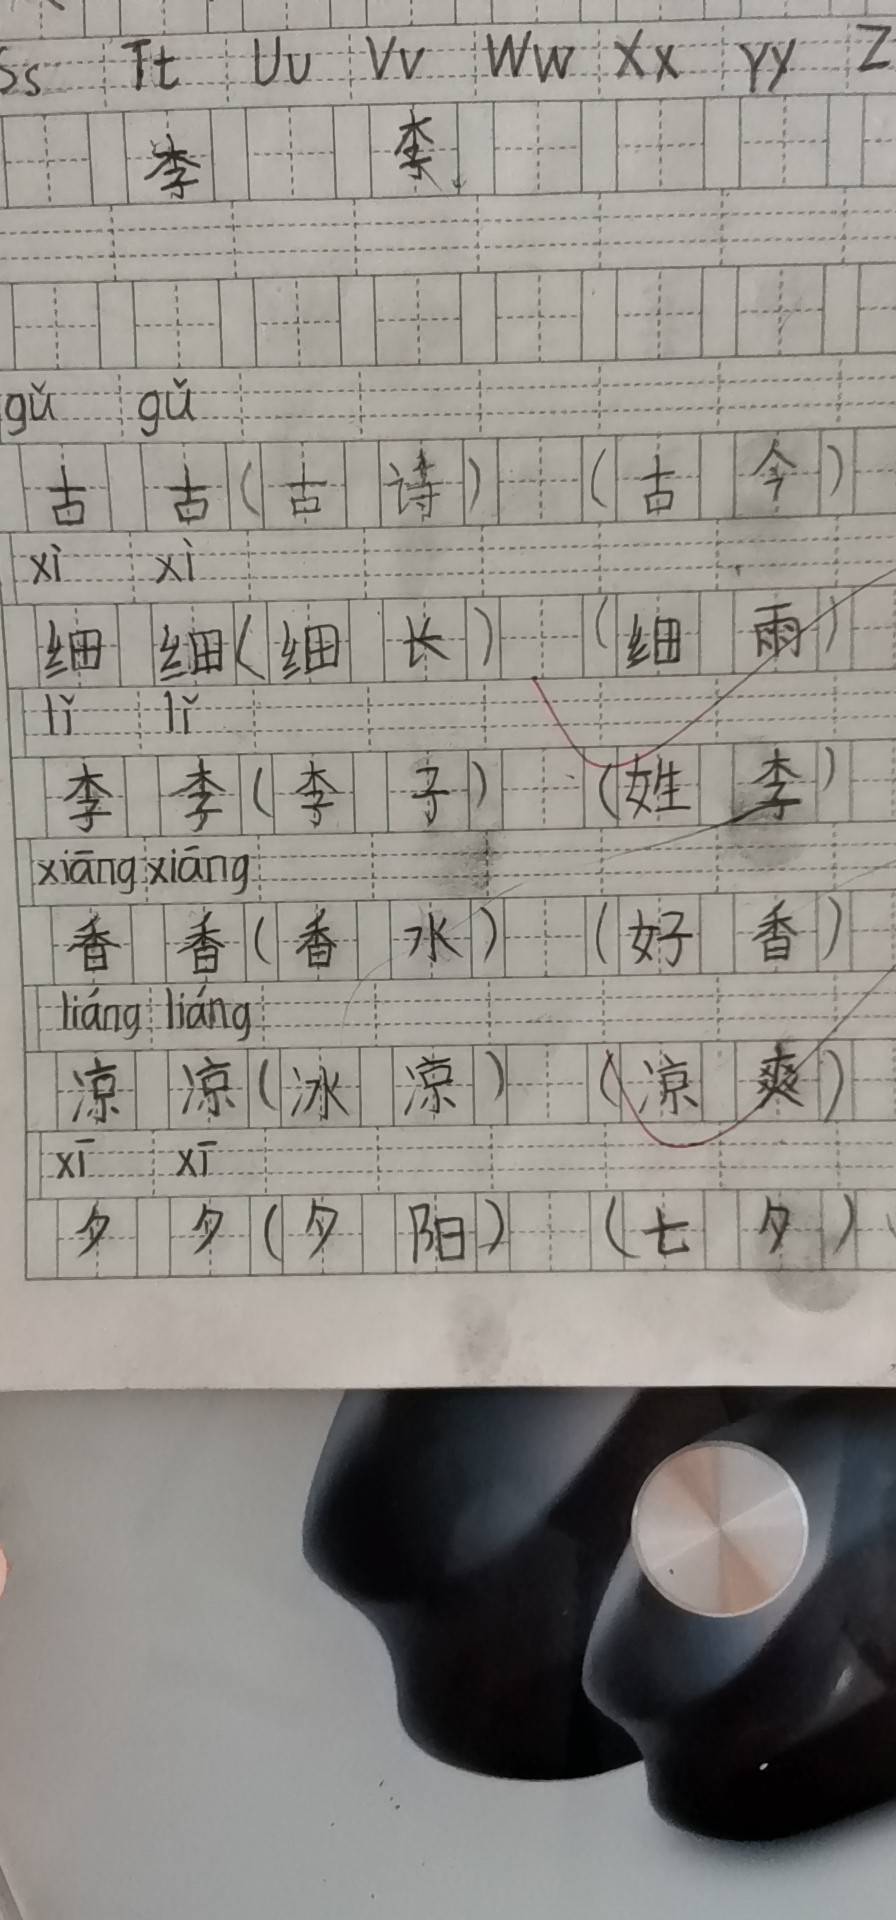 Ss Tt Uu Vv Ww Xx Yy Z
李 李
gǔ gǔ
古 古(古诗) (古今)
xì xì
细 细(细长) (细雨)
lǐ lǐ
李 李(李子) (姓李)
xiāng xiāng
香 香(香水) (好香)
liáng liáng
凉 凉(冰凉) (凉爽)
xī xī
夕 夕(夕阳) (七夕)